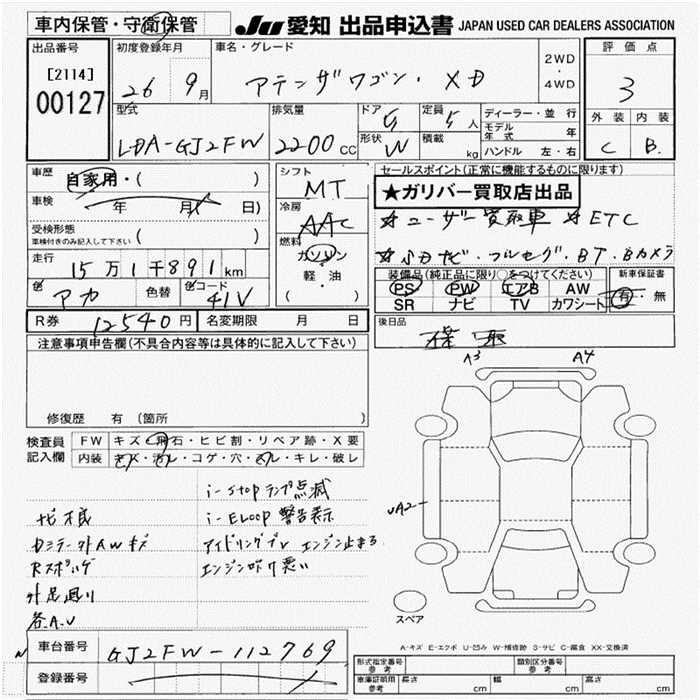 車内保管・守衛保管 JU 愛知 出品申込書 JAPAN USED CAR DEALERS ASSOCIATION
出品番号 初度登録年月 車名・グレード 評価点
[2114] 26 9月 アテンザワゴン・XD 2WD・4WD 3
00127
型式 排気量 ドア 定員 ディーラー・並行 外装 内装
LDA-GJ2FW 2200cc 5 5人 モデル年式 年 C B.
形状 W 積載 kg ハンドル 左・右
車歴 自家用・( ) シフト MT セールスポイント(正常に機能するものに限ります)
車検 年 月( 日) 冷房 AAC ★ガリバー買取店出品
受検形態 車検付きのみ記入して下さい ( ) 燃料 ガソリン 軽・油 ( ) ☆ユーザー買取車 ☆ETC
走行 15万1千891km ・ナビ・フルセグ・BT・Bカメラ
色 アカ 色替 色コード 41V 装備品(純正品に限り○をつけてください) 新車保証書
PS PW エアB AW 有・無
SR ナビ TV カワシート
R券 12540円 名変期限 月 日 後日品
注意事項申告欄(不具合内容等は具体的に記入して下さい)
A3 A4
修復歴 有(箇所 )
検査員記入欄 FW キズ・飛石・ヒビ割・リペア跡・X要
内装 キズ・汚レ・コゲ・穴・スレ・キレ・破レ
i-stopランプ点滅
i-ELOOP警告表示 A2
カシラー外AWキズ アイドリングプレ エンジン止まる
エンジン吹け悪い
外足廻り
各A.U スペア
車台番号 GJ2FW-112769 A-キズ E-エクボ U-凹み W-補修跡 S-サビ C-腐食 XX-交換済
登録番号 型式指定番号 参考 類別区分番号 参考
車庫証明用 参考 長さ cm 幅 cm 高さ cm